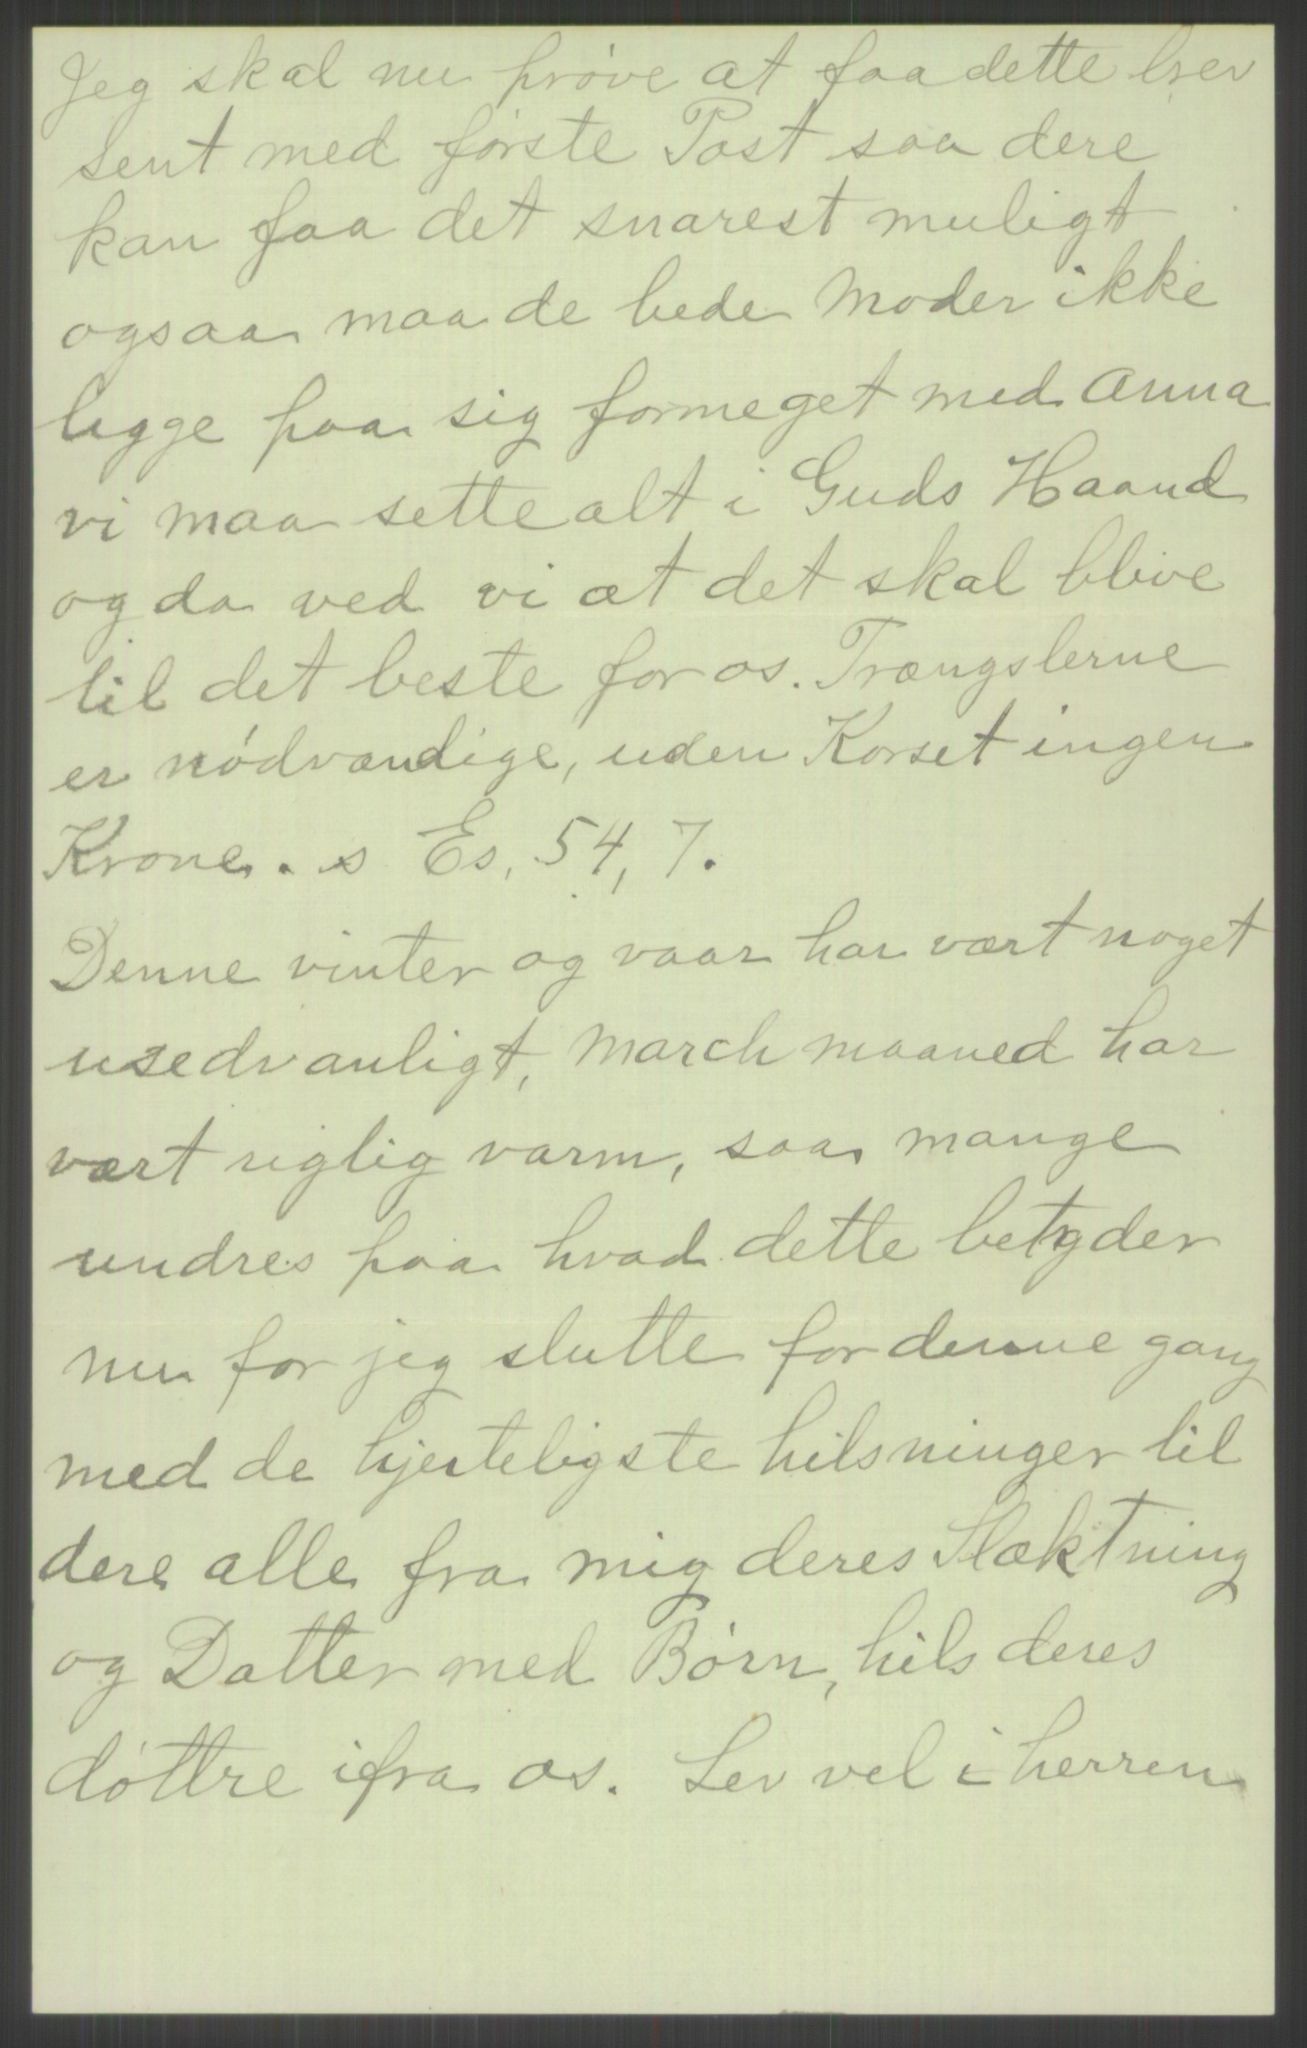 Jeg skal nu prøve at faa dette brev
sent med første Post saa dere
kan faa det snarest muligt
ogsaa maa de bede Moder ikke
legge paa sig formeget med Anna
vi maa sette alt i Guds Haand
og da ved vi at det skal blive
til det beste for os. Trængslerne
er nødvændige, uden Korset ingen
Krone. s Es, 54, 7.
Denne vinter og vaar har vært noget
usedvanligt, March maaned har
vært rigtig varm, saa mange
undres paa hvad dette betyder
nu for jeg slutte for denne gang
med de hjerteligste hilsninger til
dere alle fra mig deres Slæktning
og Datter med Børn, hils deres
døttre ifra os. Lev vel i herren